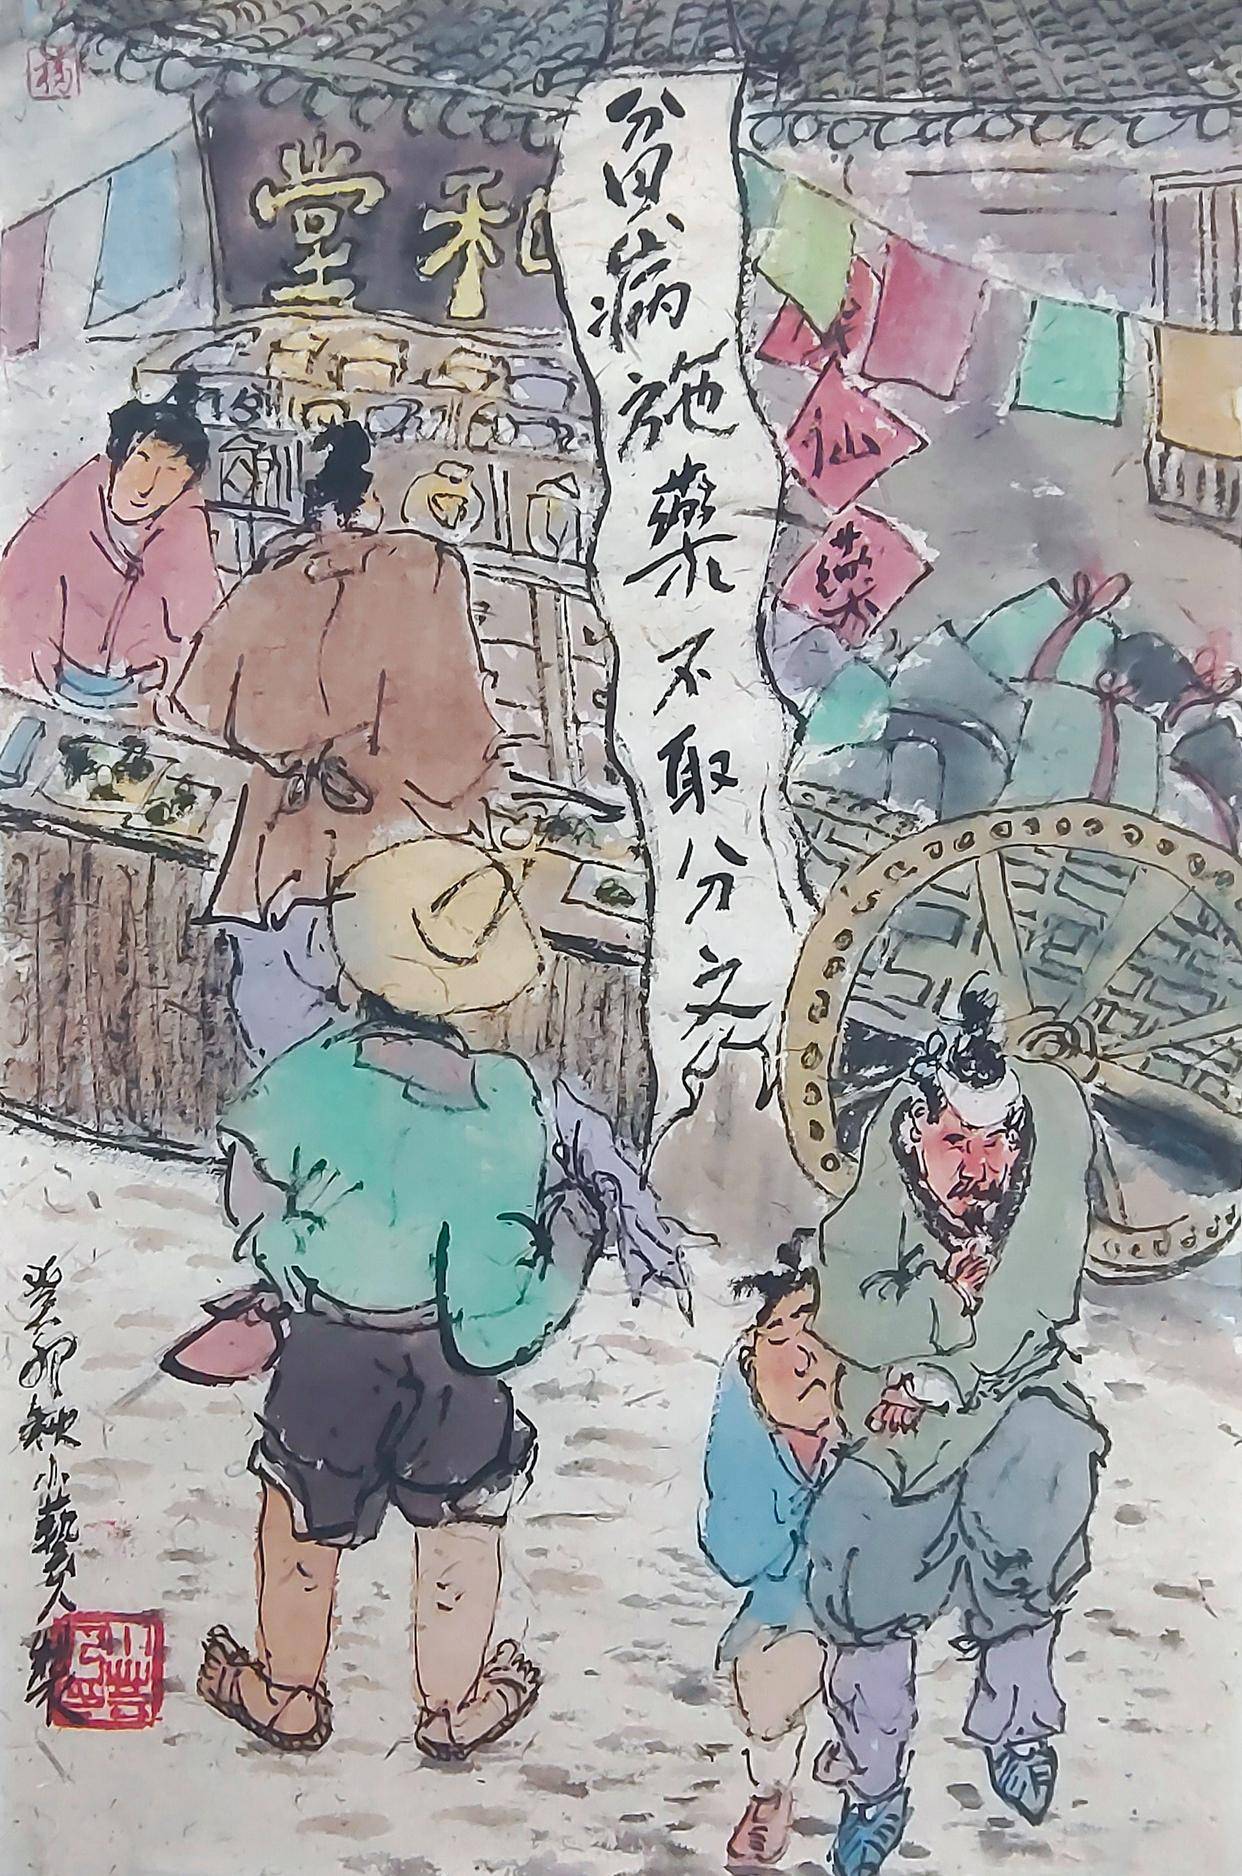 和堂
貧病施藥不取分文
仙
藥
癸卯秋小藝人